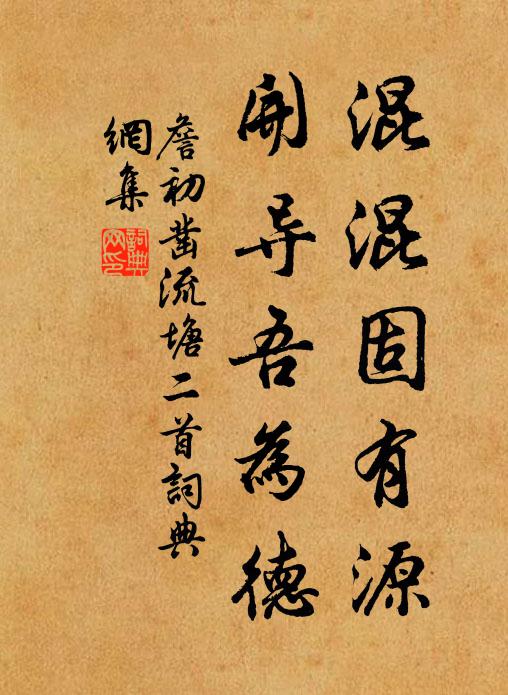 混混固有源
開导吾為德
詹初凿流塘二首詞典
網集
詞典
网印